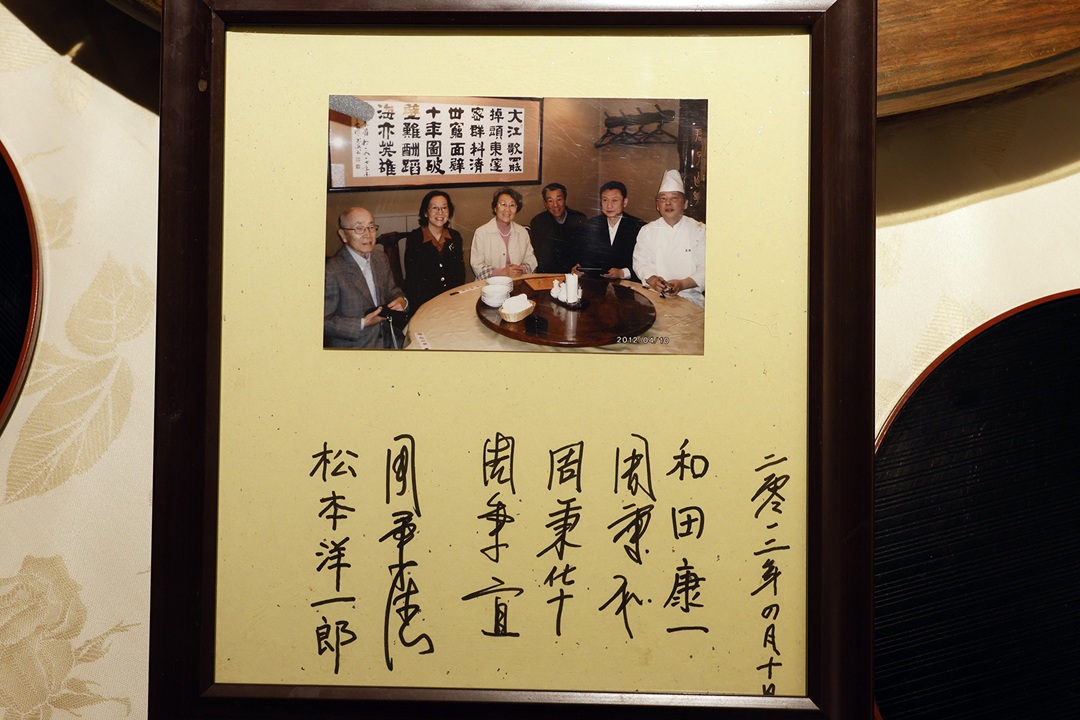 大江歌罷
掉頭東邃
密群科濟
世窮面壁
十年圖破
壁難酬蹈
海亦英雄
2012/04/10
二零一二年四月十日
和田康一
周秉和
周秉华
周秉宜
周秉德
松本洋一郎